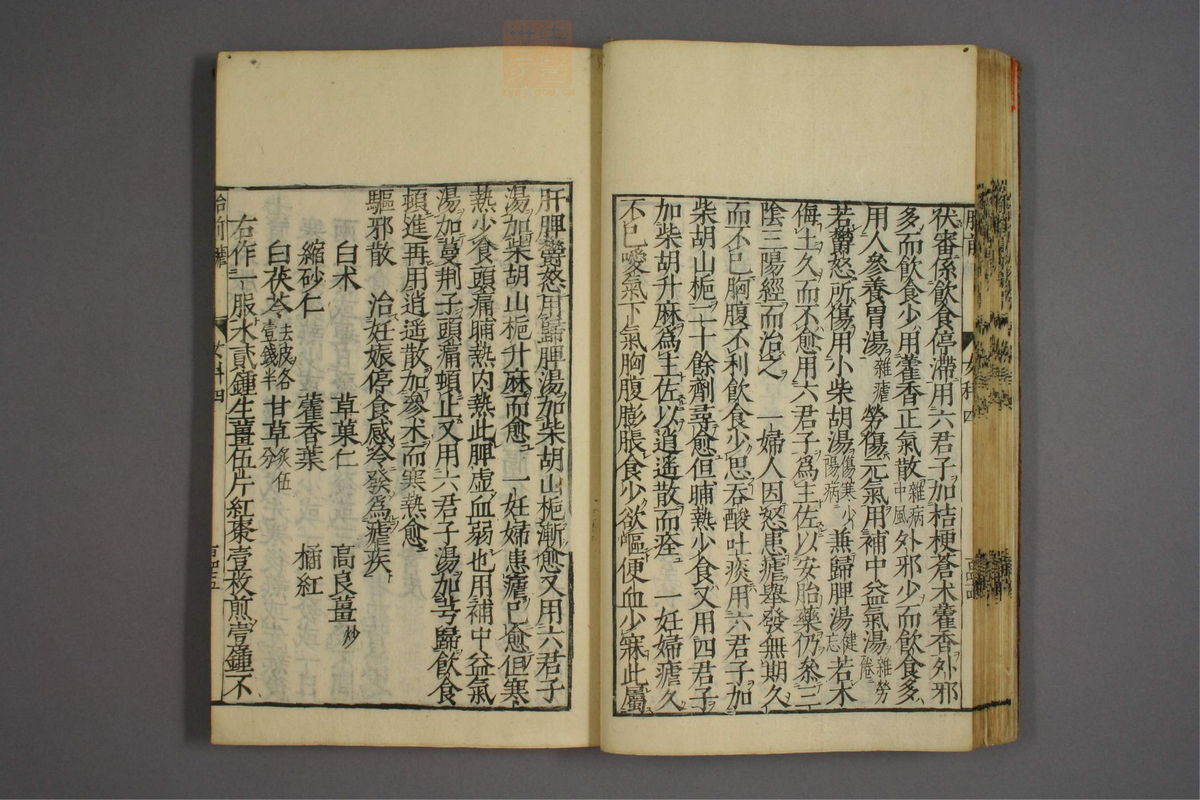 伏審係飲食停滯用六君子加桔梗蒼朮藿香外邪
多而飲食少用藿香正氣散雜病中風外邪少而飲食多
用人參養胃湯雜瘧勞傷元氣用補中益氣湯雜勞倦
若鬱怒所傷用小柴胡湯傷寒少陽病兼歸脾湯健忘若木
侮土久而不愈用六君子爲主佐以安胎藥仍叅三
陰三陽經而治之 一婦人因怒患瘧舉發無期久
而不已胸腹不利飲食少思吞酸吐痰用六君子加
柴胡山梔二十餘劑尋愈但晡熱少食又用四君子
加柴胡升麻爲主佐以逍遙散而痊 一妊婦瘧久
不已噯氣下氣胸腹膨脹食少欲嘔便血少寐此屬
肝脾鬱怒用歸脾湯加柴胡山梔漸愈又用六君子
湯加柴胡山梔升麻而愈 一妊婦患瘧已愈但寒
熱少食頭痛晡熱内熱此脾虛血弱也用補中益氣
湯加蔓荆子頭痛頓止又用六君子湯加芎歸飲食
頓進再用逍遙散加參朮而寒熱愈
驅邪散 治妊娠停食感冷發爲瘧疾
白朮 草菓仁 高良薑炒
縮砂仁 藿香葉 橘紅
白茯苓去皮各壹錢半 甘草炙伍分
右作一服水貳鍾生薑伍片紅棗壹枚煎壹鍾不
胎前
女科四